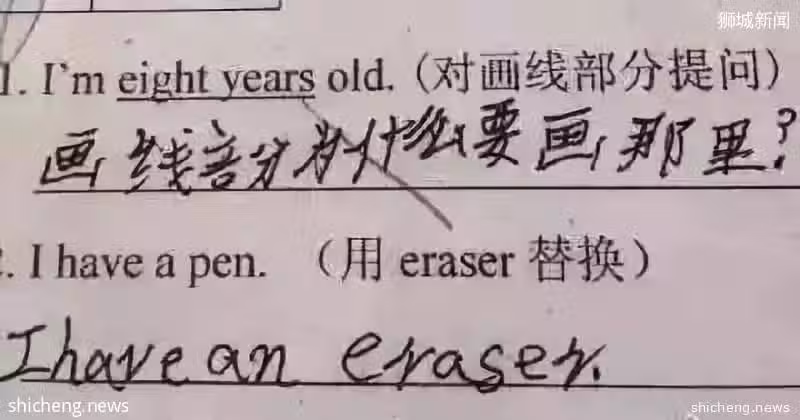 狮城新闻
1. I'm eight years old. (对画线部分提问)
画线部分为什么要画那里?
. I have a pen. （用 eraser 替换）
I have an eraser.
shicheng.news
shicheng.news